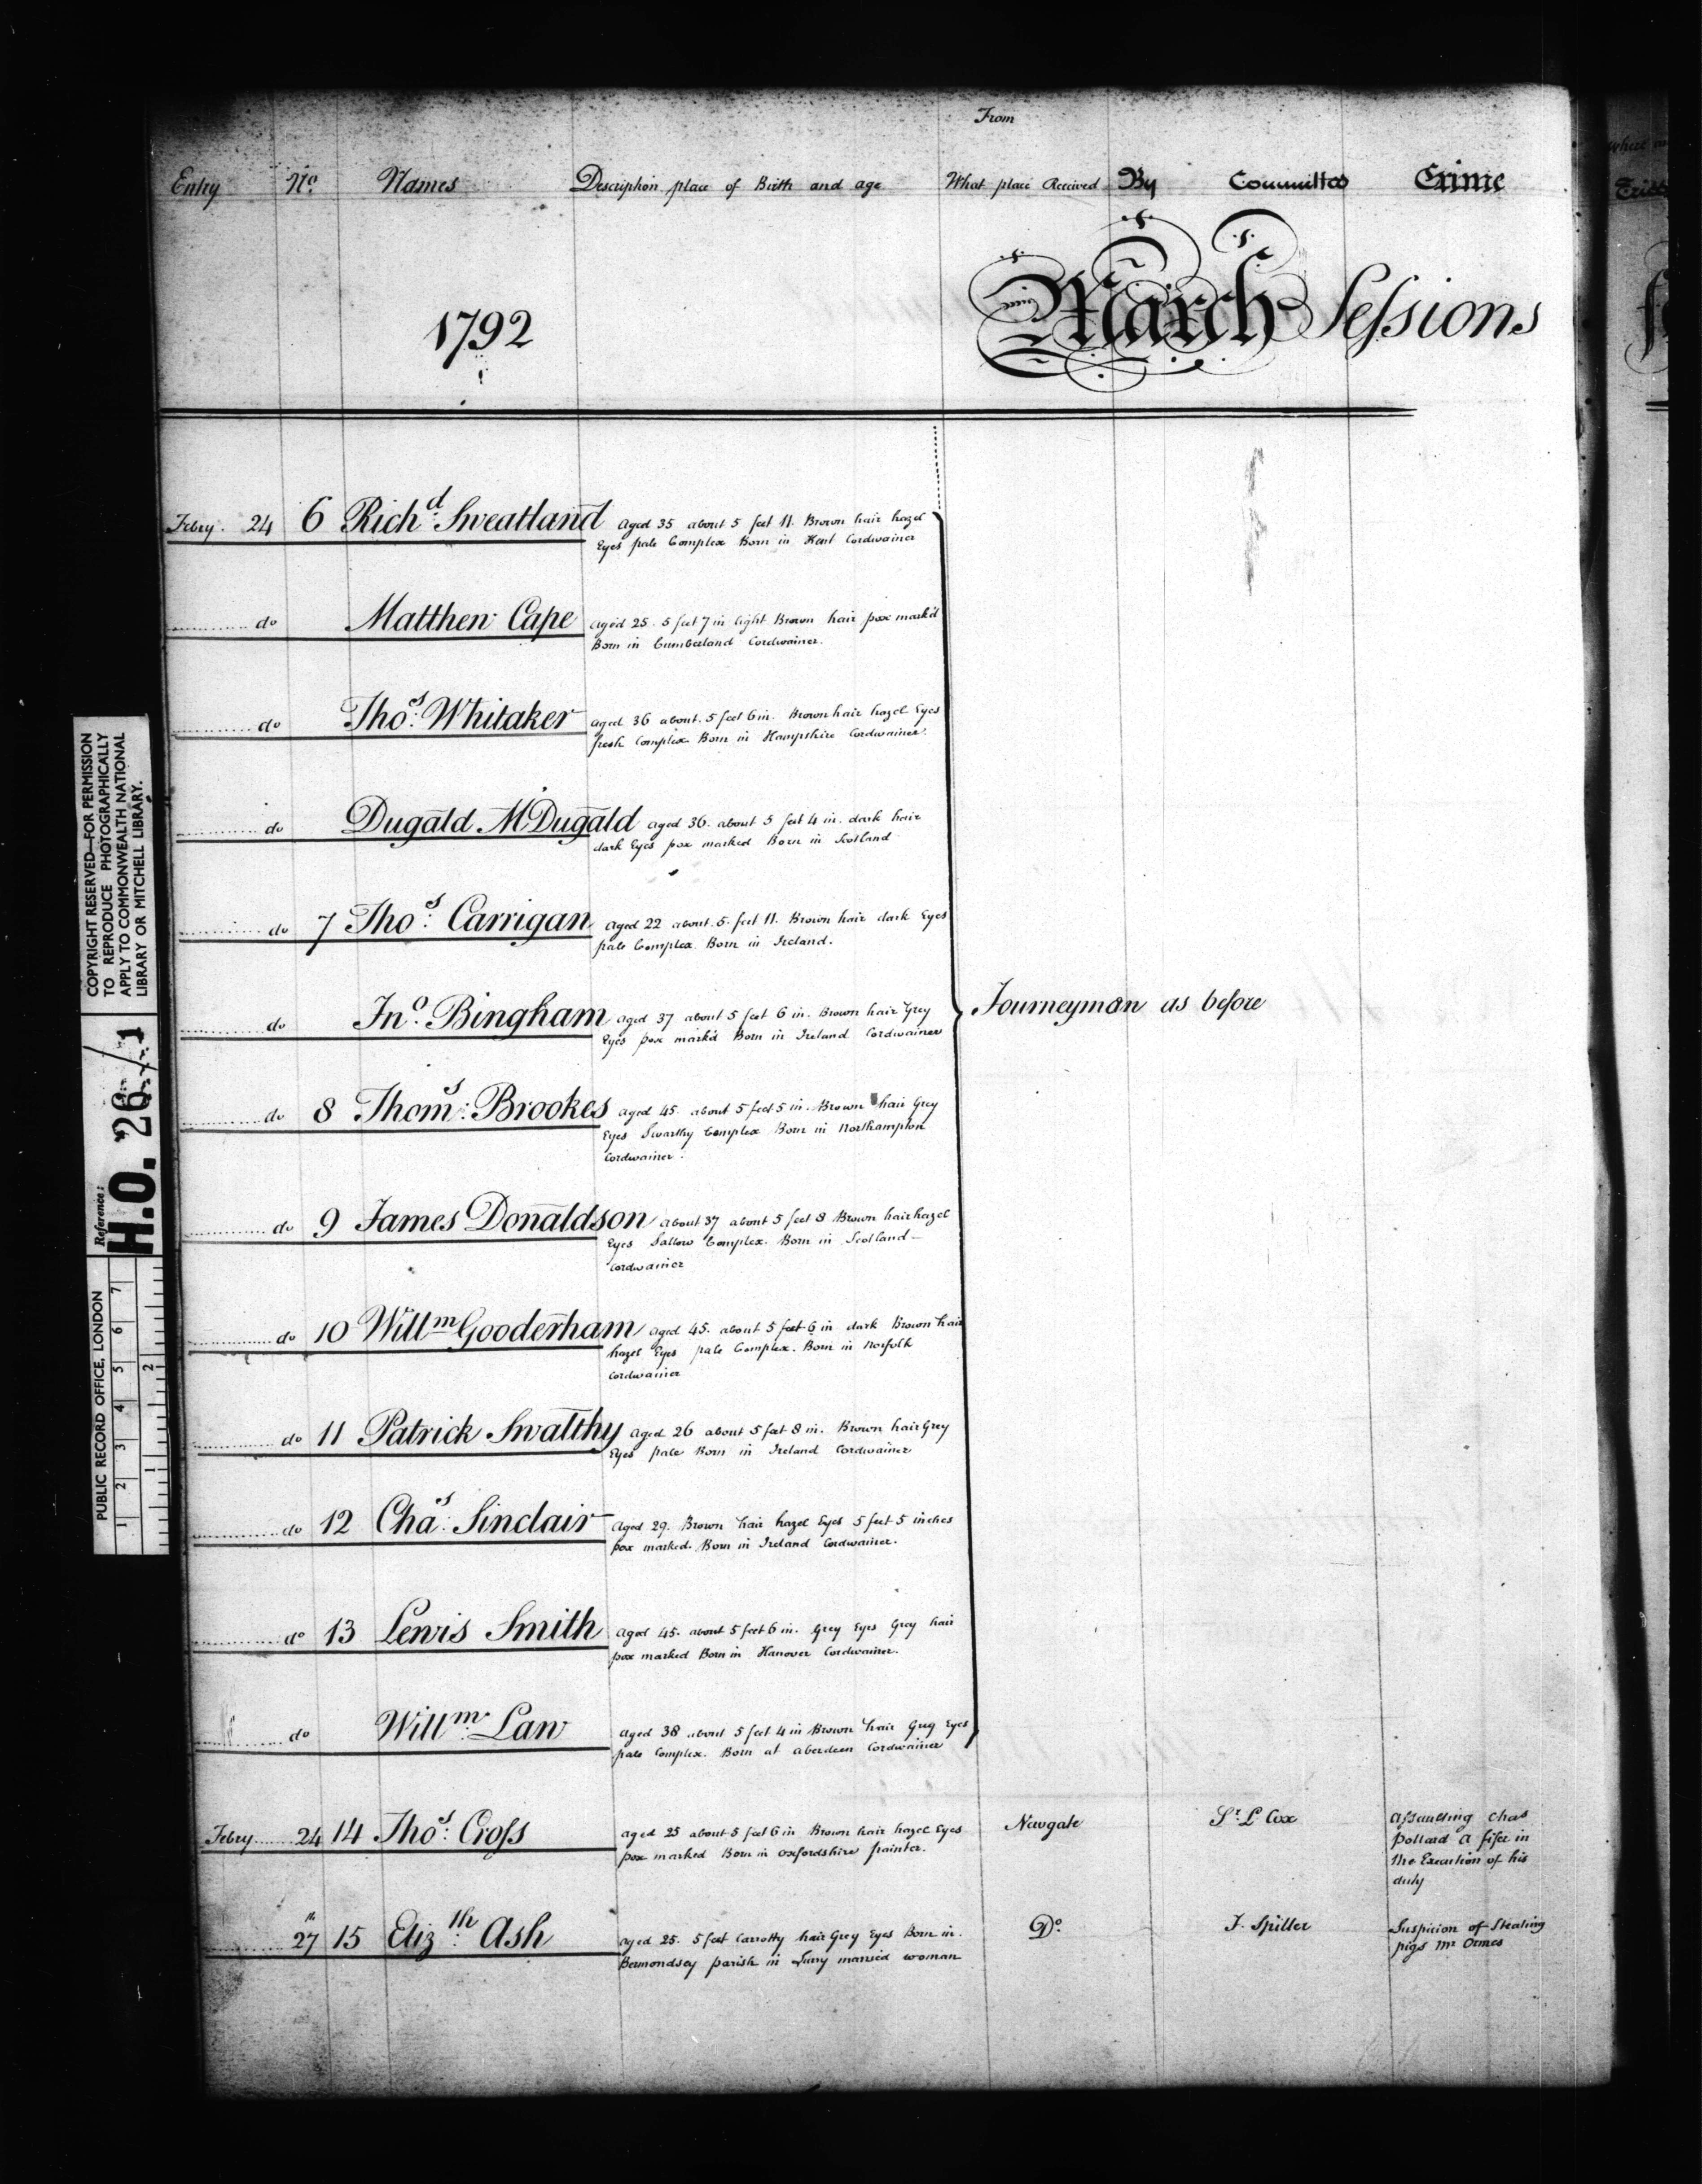 From
Entry No. Names Description place of Birth and age What place Received By Committed Crime
Where
1792
March Sessions
Febry. 24 6 Richd. Sweatland aged 35 about 5 feet 11. Brown hair hazel
Eyes pale Complex Born in Kent Cordwainer
do Matthew Cape aged 25. 5 feet 7 in light Brown hair pox mark'd
Born in Cumberland Cordwainer.
do Thos. Whitaker aged 36 about. 5 feet 6 in. Brown hair hazel Eyes
fresh Complex Born in Hampshire Cordwainer.
do Dugald McDugald aged 36. about 5 feet 4 in. dark hair
dark Eyes pox marked Born in Scotland
do 7 Thos. Carrigan aged 22 about. 5. feet 11. Brown hair dark Eyes
pale Complex. Born in Ireland.
do Jno. Bingham aged 37 about 5 feet 6 in. Brown hair Grey
Eyes pox mark'd Born in Ireland Cordwainer
Journeyman as before
do 8 Thoms. Brookes aged 45. about 5 feet 5 in. Brown hair Grey
Eyes Swarthy Complex Born in Northampton
Cordwainer.
do 9 James Donaldson about 37 about 5 feet 8 Brown hair hazel
Eyes Sallow Complex. Born in Scotland
Cordwainer
do 10 Willm Gooderham aged 45. about 5 feet 6 in dark Brown hair
hazel Eyes pale Complex. Born in Norfolk
Cordwainer
do 11 Patrick Swalthy aged 26 about 5 feet 8 in. Brown hair Grey
Eyes pale Born in Ireland Cordwainer
do 12 Chas. Sinclair aged 29. Brown hair hazel Eyes 5 feet 5 inches
pox marked. Born in Ireland Cordwainer.
do 13 Lewis Smith aged 45. about 5 feet 6 in. Grey Eyes Grey hair
pox marked Born in Hanover Cordwainer.
do Willm. Law aged 38 about 5 feet 4 in Brown hair Grey Eyes
pale Complex. Born at aberdeen Cordwainer
Febry 24 14 Thos. Croſs aged 25 about 5 feet 6 in Brown hair hazel Eyes
pox marked Born in oxfordshire painter.
Newgate Sr. L Cox
aſsaulting Chas
Pollard a fifer in
the Execution of his
duty
27th 15 Elizth. Ash aged 25. 5 feet Carrotty hair Grey Eyes Born in
Bermondsey parish in Surry married woman
Do. J. Spiller
Suspicion of Stealing
pigs Mr Ormes
COPYRIGHT RESERVED—FOR PERMISSION
TO REPRODUCE PHOTOGRAPHICALLY
APPLY TO COMMONWEALTH NATIONAL
LIBRARY OR MITCHELL LIBRARY.
Reference:
H.O. 26/1
PUBLIC RECORD OFFICE, LONDON
1 2 3 4 5 6 7
1 2